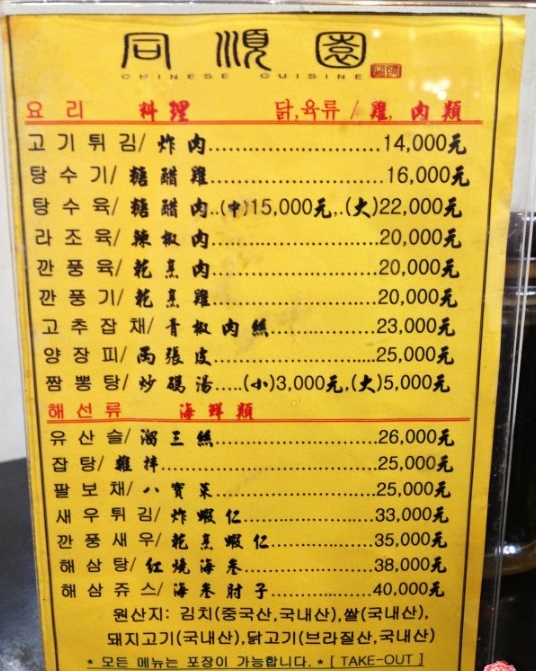 同順園
CHINESE CUISINE
요리 料理 닭,육류 / 雞, 肉類
고기튀김/ 炸肉..............................14,000元
탕수기/ 糖醋雞..............................16,000元
탕수육/ 糖醋肉..(中)15,000元,..(大)22,000元
라조육/ 辣椒肉..............................20,000元
깐풍육/ 乾烹肉..............................20,000元
깐풍기/ 乾烹雞..............................20,000元
고추잡채/ 青椒肉絲..................23,000元
양장피/ 両張皮..............................25,000元
짬뽕탕/ 炒碼湯.....(小)3,000元,(大)5,000元
해선류 海鮮類
유산슬/ 溜三絲..............................26,000元
잡탕/ 雜拌..............................25,000元
팔보채/ 八寶菜..............................25,000元
새우튀김/ 炸蝦仁..................33,000元
깐풍새우/ 乾烹蝦仁..................35,000元
해삼탕/ 紅燒海参..................38,000元
해삼쥬스/ 海参肘子..................40,000元
원산지: 김치(중국산,국내산),쌀(국내산),
돼지고기(국내산),닭고기(브라질산,국내산)
* 모든 메뉴는 포장이 가능합니다. * [ TAKE-OUT ]